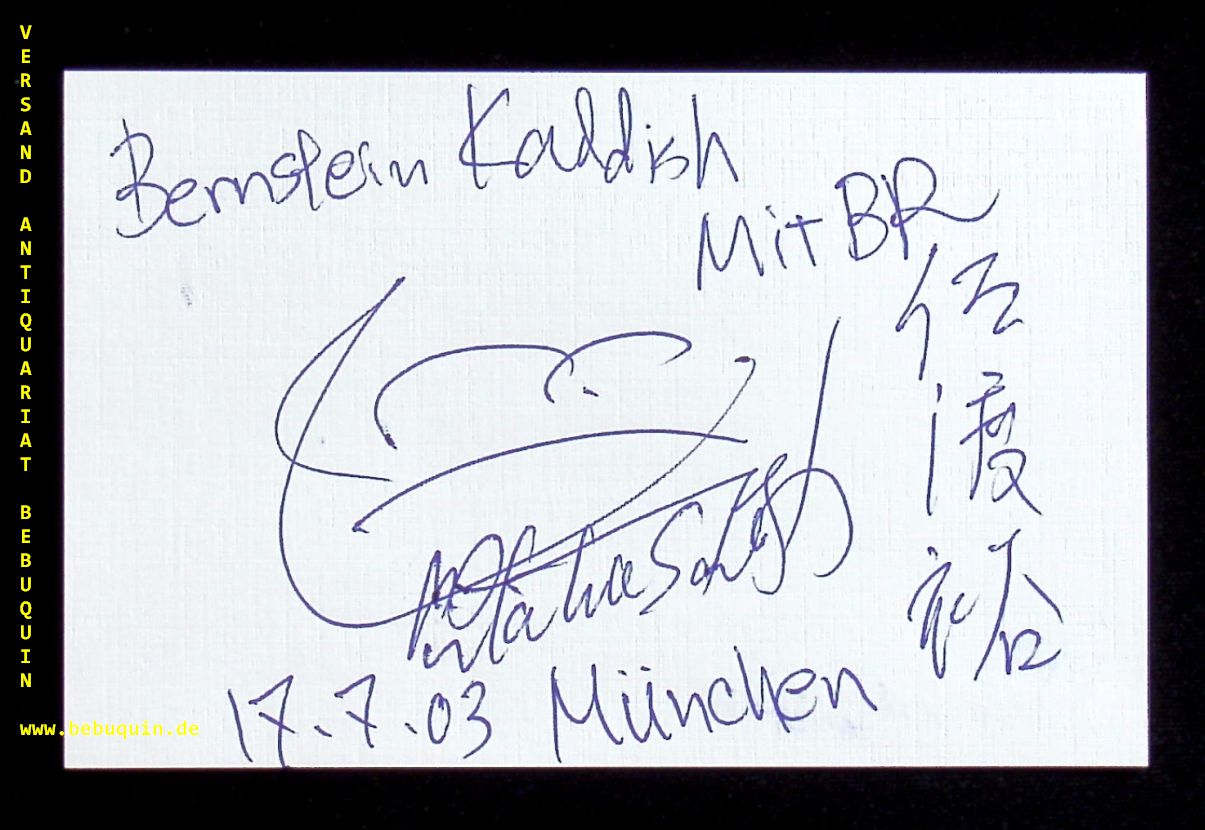 VERSAND ANTIQUARIAT BEBUQUIN
www.bebuquin.de
Bernstein Kaddish
Mit BR
佐渡裕
Yutaka Sado
17.7.03 München